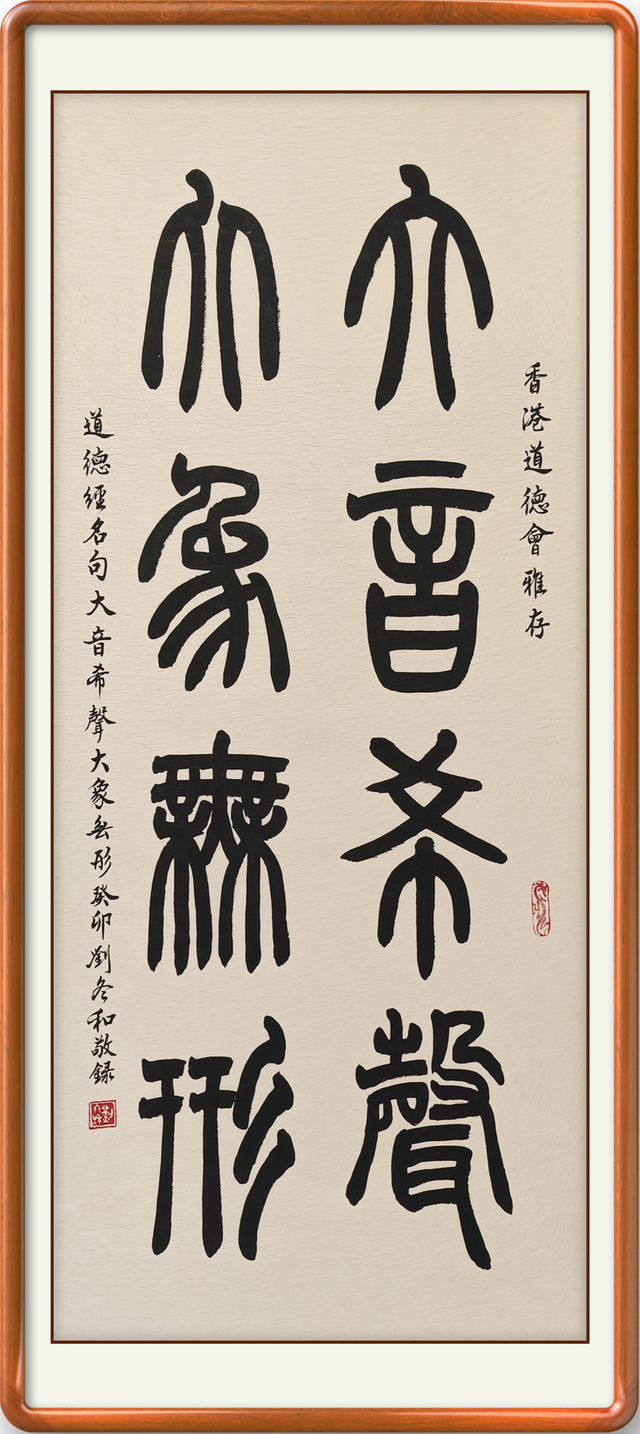 香港道德會雅存
大音希聲
大象無形
道德經名句大音希聲大象無形癸卯劉冬和敬録